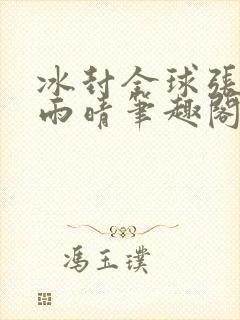 冰封全球張
雨晴筆趣閣
馮玉璞